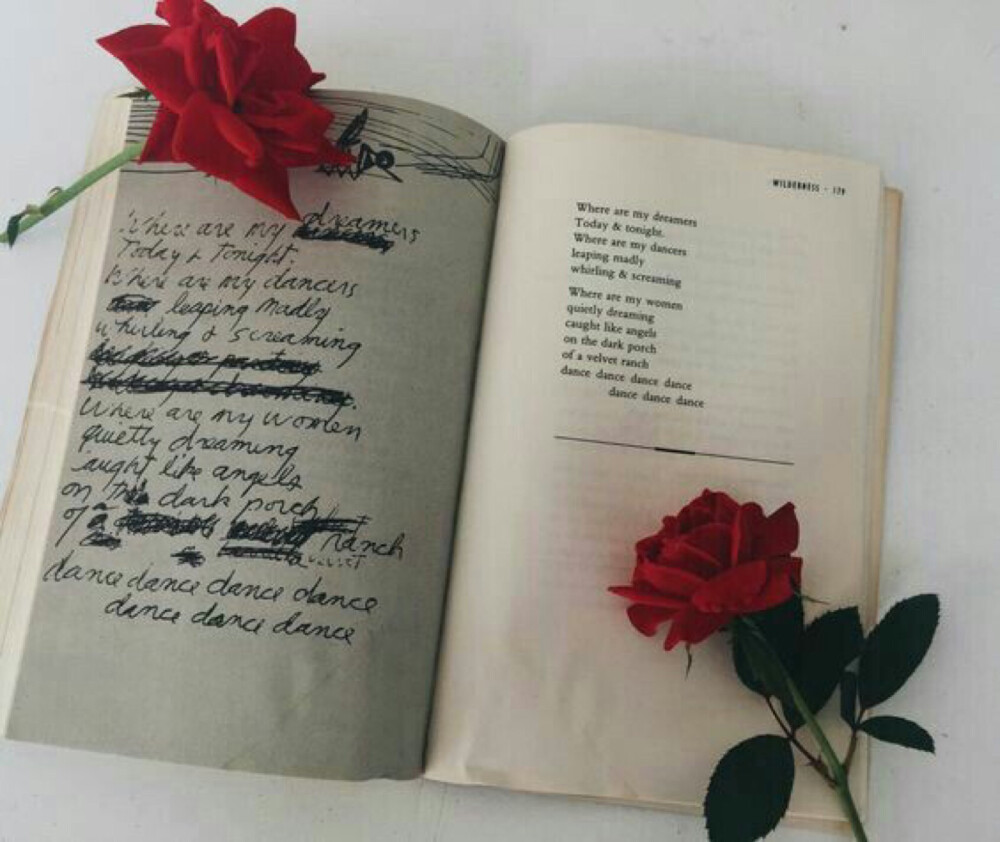 Where are my dreamers
Today & tonight.
Where are my dancers
leaping madly
whirling & screaming
Where are my women
quietly dreaming
caught like angels
on the dark porch
of a velvet ranch
dance dance dance dance
dance dance dance
WILDERNESS - 179
Where are my dreamers
Today & tonight.
Where are my dancers
leaping madly
whirling & screaming
Where are my women
quietly dreaming
caught like angels
on the dark porch
of a velvet ranch
dance dance dance dance
dance dance dance